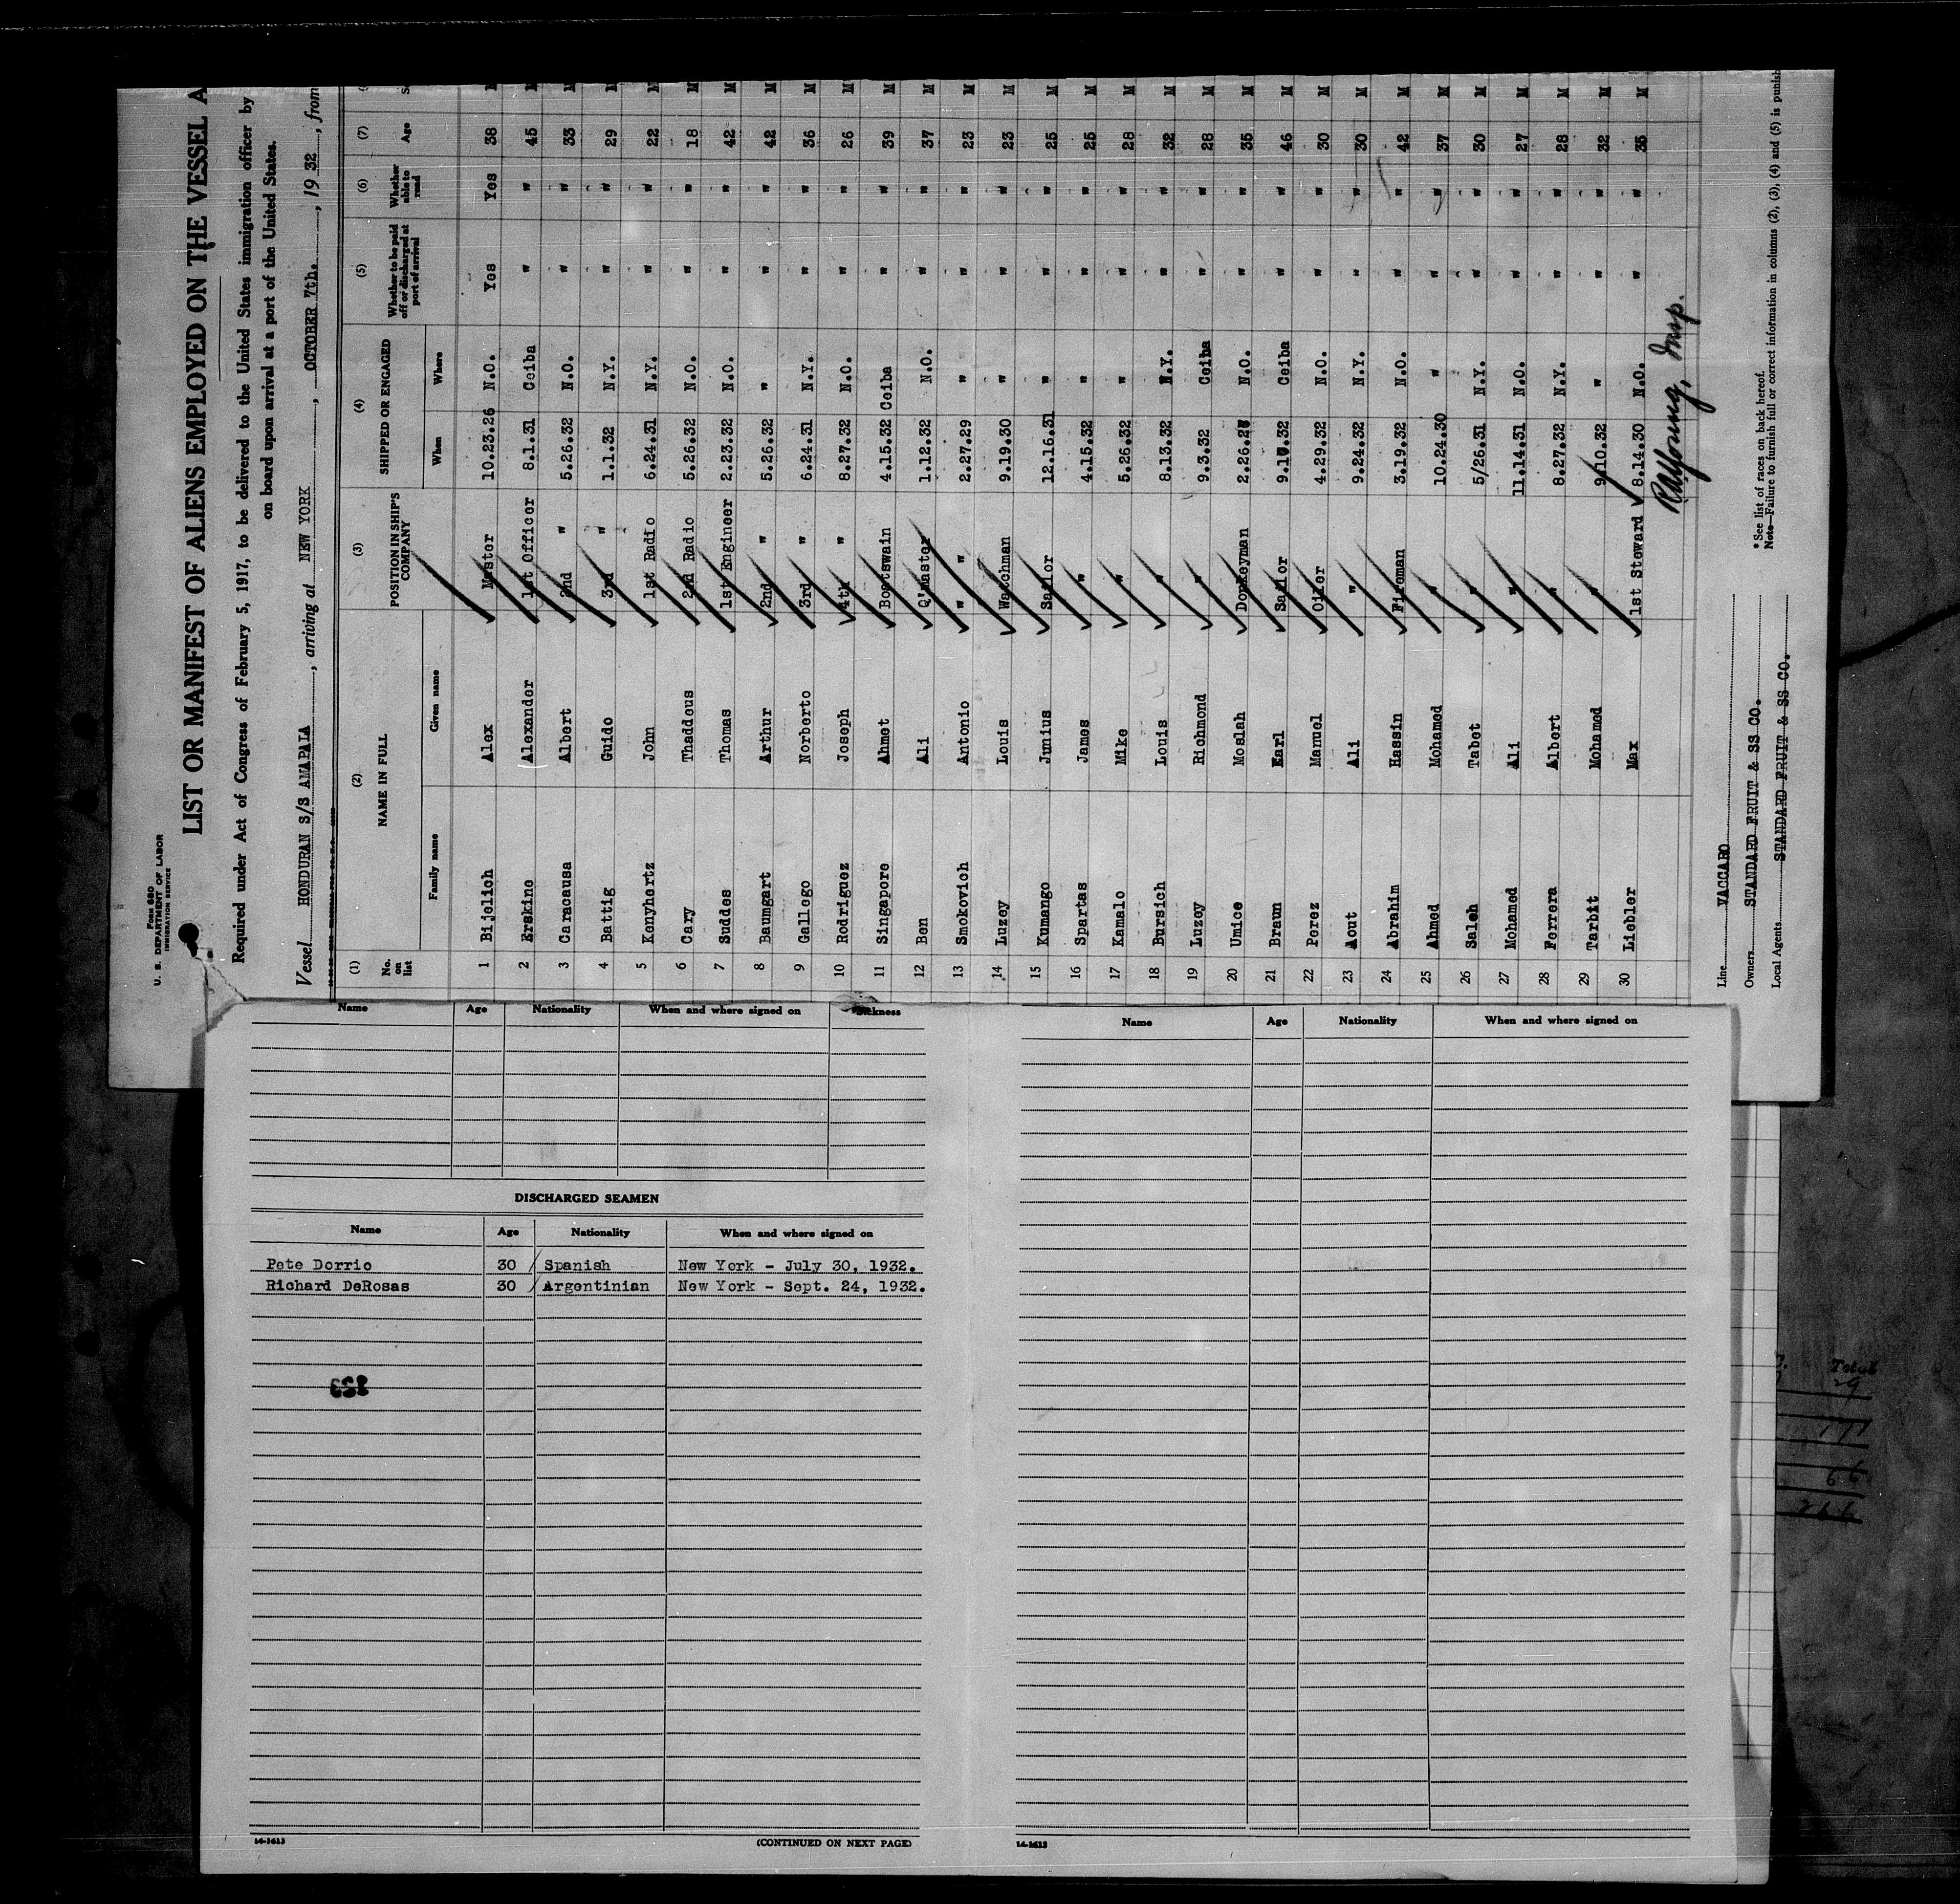 Form 680
U. S. DEPARTMENT OF LABOR
IMMIGRATION SERVICE
LIST OR MANIFEST OF ALIENS EMPLOYED ON THE VESSEL A
Required under Act of Congress of February 5, 1917, to be delivered to the United States immigration officer by
on board upon arrival at a port of the United States.
Vessel HONDURAN S/S AMAPALA, arriving at NEW YORK, OCTOBER 7th., 1932, from
(1) (2) (3) (4) (5) (6) (7)
No. on list NAME IN FULL POSITION IN SHIP'S COMPANY SHIPPED OR ENGAGED Whether to be paid off or discharged at port of arrival Whether able to read Age
Family name Given name When Where
1 Bijelich Alex Master 10.23.26 N.O. Yes Yes 38 M
2 Erskine Alexander 1st Officer 8.1.31 Ceiba " " 45 M
3 Caracausa Albert 2nd " 5.26.32 N.O. " " 33 M
4 Battig Guido 3rd " 1.1.32 N.Y. " " 29 M
5 Kenyhertz John 1st Radio 6.24.31 N.Y. " " 22 M
6 Cary Thaddeus 2nd Radio 5.26.32 N.O. " " 18 M
7 Suddes Thomas 1st Engineer 2.23.32 N.O. " " 42 M
8 Baumgart Arthur 2nd " 5.26.32 " " " 42 M
9 Gallego Norberto 3rd " 6.24.31 N.Y. " " 36 M
10 Rodriguez Joseph 4th " 8.27.32 N.O. " " 26 M
11 Singapore Ahmet Boatswain 4.15.32 Ceiba " " 39 M
12 Ben Ali Q'Master 1.12.32 N.O. " " 37 M
13 Smokovich Antonio " " 2.27.29 " " " 23 M
14 Luzey Louis Watchman 9.19.30 " " " 23 M
15 Kumango Junius Sailor 12.16.31 " " " 25 M
16 Spartas James " 4.15.32 " " " 25 M
17 Kamalo Mike " 5.26.32 " " " 28 M
18 Bursich Louis " 8.13.32 N.Y. " " 32 M
19 Luzey Richmond " 9.3.32 Ceiba " " 28 M
20 Umice Moslah Donkeyman 2.26.27 N.O. " " 35 M
21 Braun Karl Sailor 9.17.32 Ceiba " " 46 M
22 Perez Manuel Oiler 4.29.32 N.O. " " 30 M
23 Aout Ali " 9.24.32 N.Y. " " 30 M
24 Abrahim Hassin Fireman 3.19.32 N.O. " " 42 M
25 Ahmed Mohamed " 10.24.30 " " " 37 M
26 Saleh Tabet " 5/26.31 N.Y. " " 30 M
27 Mohamed Ali " 11.14.31 N.O. " " 27 M
28 Ferrera Albert " 8.27.32 N.Y. " " 28 M
29 Tarbit Mohamed " 9.10.32 " " " 32 M
30 Liebler Max 1st Steward 8.14.30 N.O. " " 35 M
Insp.
Line VACCARO
Owners STANDARD FRUIT & SS CO.
Local Agents STANDARD FRUIT & SS CO.
* See list of races on back hereof.
Note—Failure to furnish full or correct information in columns (2), (3), (4) and (5) is punish
Name Age Nationality When and where signed on Sickness
DISCHARGED SEAMEN
Name Age Nationality When and where signed on
Pete Dorrio 30 Spanish New York - July 30, 1932.
Richard DeRosas 30 Argentinian New York - Sept. 24, 1932.
14-1613
(CONTINUED ON NEXT PAGE)
Name Age Nationality When and where signed on
14-1613
Total
29
171
66
266